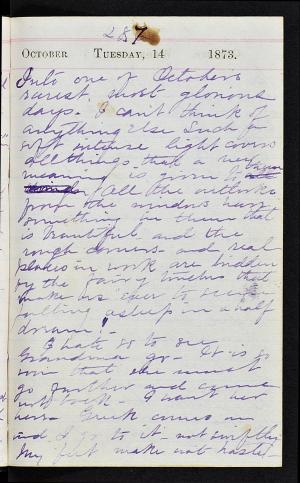 287
OCTOBER TUESDAY, 14 1873.
Into one of Octobers
rarest most glorious
days. I can't think of
anything else. Such a
soft intense light covers
all things that a new
meaning is given to them
All the outlooks
from the windows have
something in them that
is beautiful and the
rough corners and real
places in work are hidden
by the fairy touches that
make one ever to seem
falling asleep in a half
dream!
I hate so to see
Grandma go. It is so
that she must
go further and come
back. I want her
here. Greek comes in
and I go to it - not swiftly
My feet make not haste